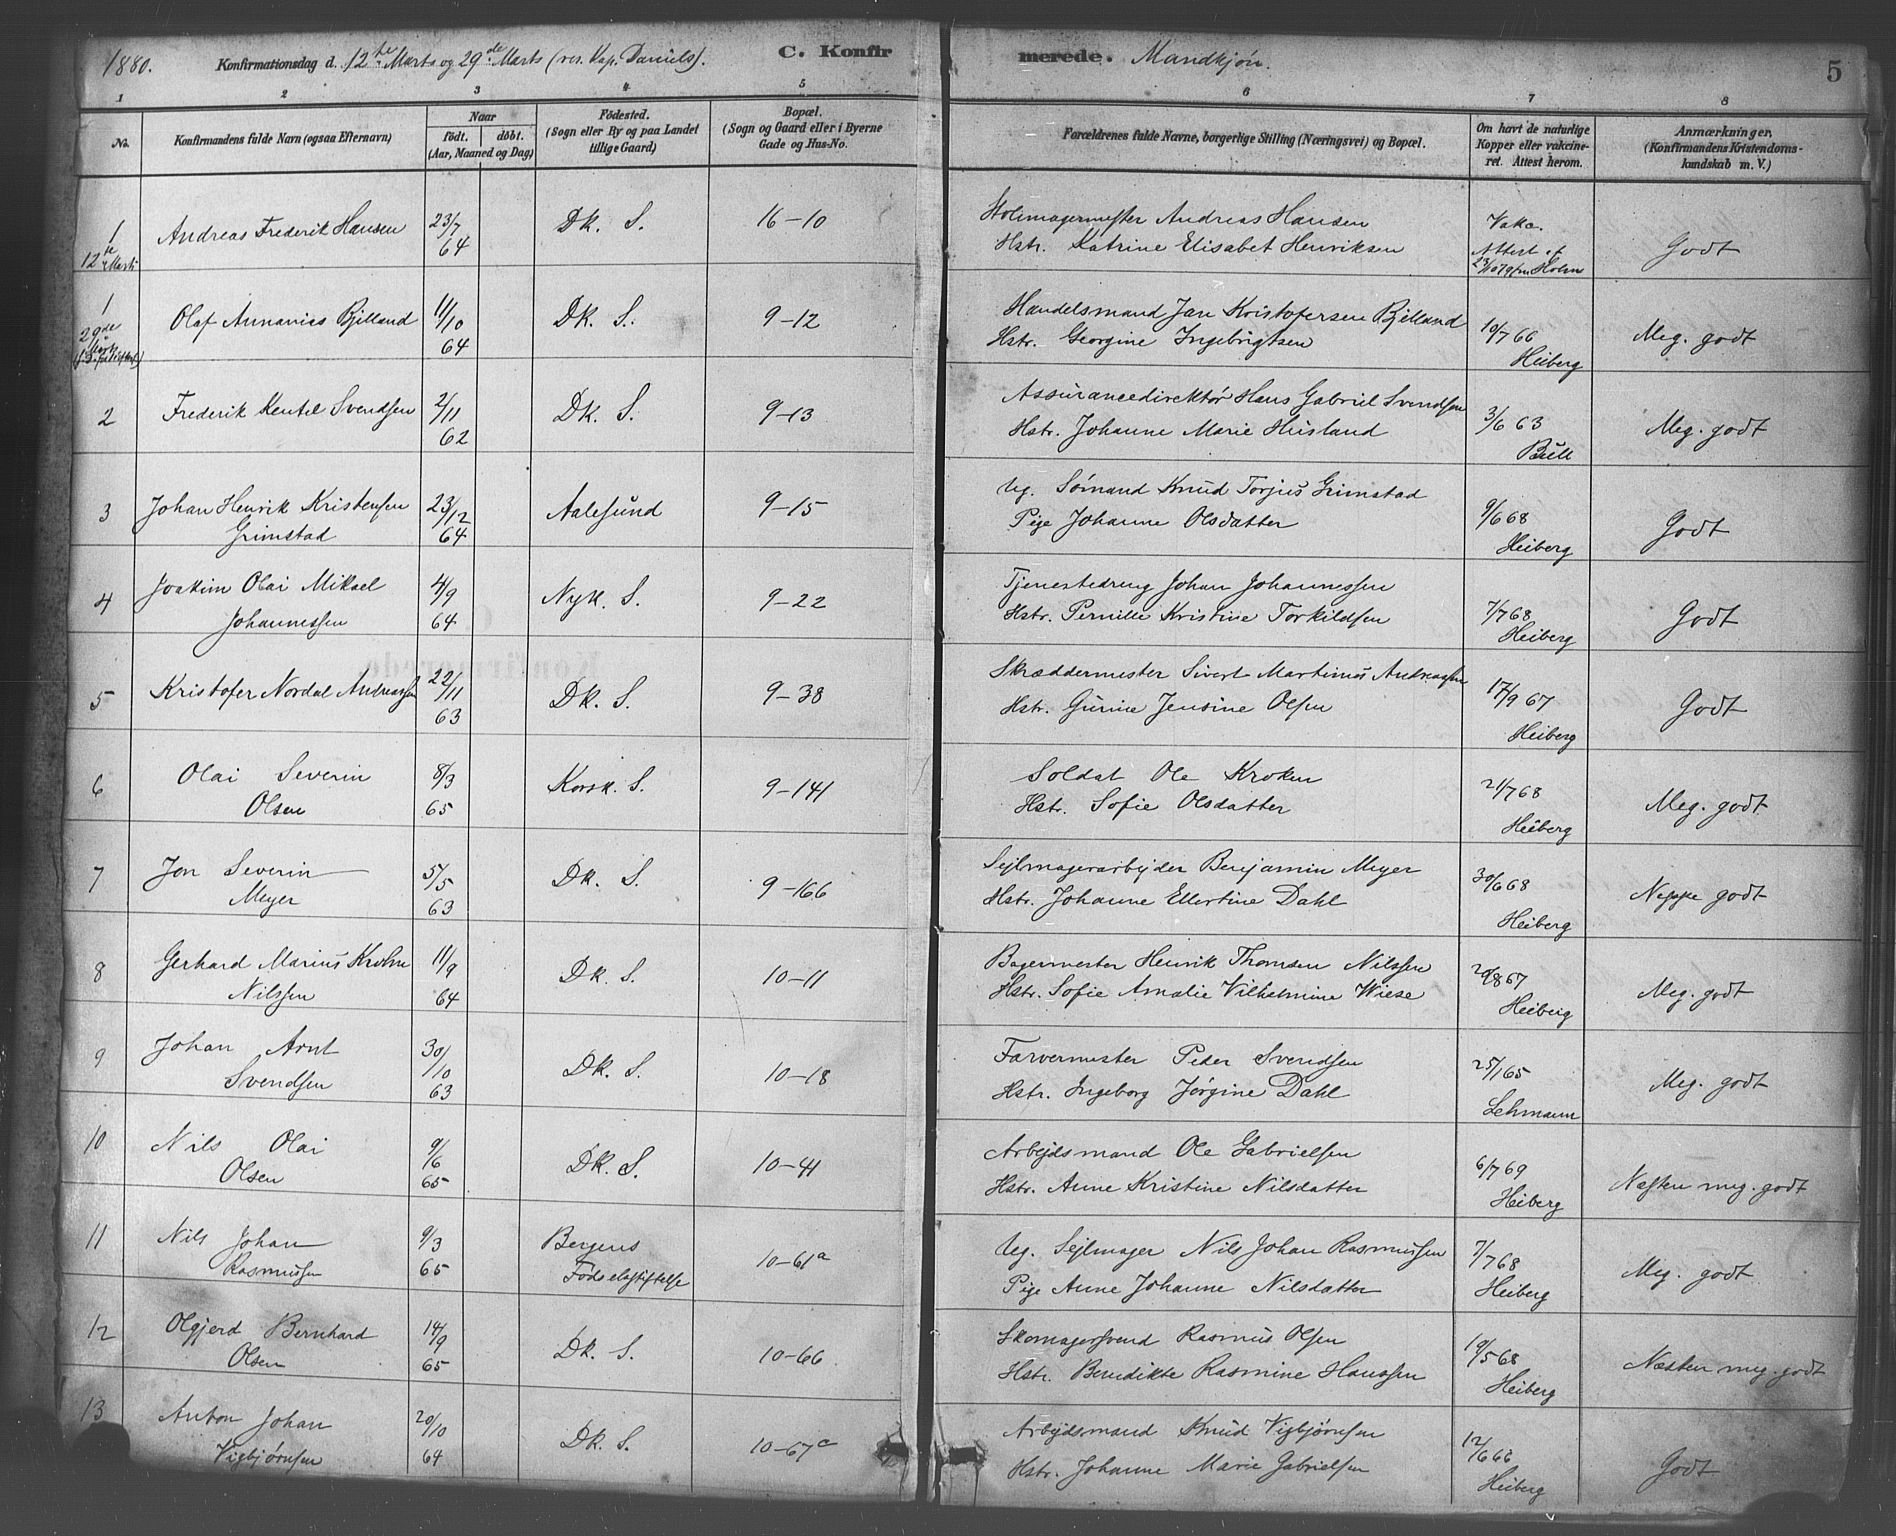 1880. Konfirmationsdag d. 12te Marts og 29de Marts (res. Kap. Daniels). C. Konfirmerede. Mandkjøn. 5
1 2 3 4 5 6 7 8
No. Konfirmandens fulde Navn (ogsaa Efternavn) Naar født. døbt. (Aar, Maaned og Dag) Fødested. (Sogn eller By og paa Landet tillige Gaard) Bopæl. (Sogn og Gaard eller i Byerne Gade og Hus-No. Forældrenes fulde Navne, borgerlige Stilling (Næringsvei) og Bopæl. Om havt de naturlige Kopper eller vakcineret. Attest herom. Anmærkninger, (Konfirmandens Kristendomskundskab m. V.)
1 Andreas Frederik Hansen 23/7 Dk. S. 16-10 Stolmagermester Andreas Hansen Vakc.
12te Marts 64 Hstr. Katrine Elisabet Henriksen Attest af Holm Godt
1 Olaf Annanias Bjelland 11/10 Dk. S. 9-12 Handelsmand Jan Kristofersen Bjelland 10/7 66
29de Marts 64 Hstr. Georgine Ingebrigtsen Heiberg Meg. godt
2 Frederik Kentel Svendsen 2/11 Dk. S. 9-13 Assurancedirektør Hans Gabriel Svendsen 3/6 63
62 Hstr. Johanne Marie Husland Bull Meg. godt
3 Johan Henrik Kristensen 23/12 Aalesund 9-15 Ug. Sømand Knud Torjus Grimstad 9/6 68
Grimstad 64 Pige Johanne Olsdatter Heiberg Godt
4 Joakim Olai Mikael 4/9 Nyk. S. 9-22 Tjenestedreng Johan Johannessen 7/7 68
Johannessen 64 Hstr. Pernille Kristine Torkildsen Heiberg Godt
5 Kristofer Nordal Andreassen 22/11 Dk. S. 9-38 Skræddermester Sivert Martinus Andreassen 17/9 67
63 Hstr. Gurine Jensine Olsen Heiberg Godt
6 Olai Severin 8/3 Korsk. S. 9-141 Soldat Ole Kroken 21/7 68
Olsen 65 Hstr. Sofie Olsdatter Heiberg Meg. godt
7 Jon Severin 5/5 Dk. S. 9-166 Sejlmagerarbejder Benjamin Meyer 30/6 68
Meyer 63 Hstr. Johanne Ellertine Dahl Heiberg Neppe godt
8 Gerhard Marius Krohn 11/9 Dk. S. 10-11 Bagermester Henrik Thomsen Nilssen 20/8 67
Nilssen 64 Hstr. Sofie Amalie Vilhelmine Wiese Heiberg Meg. godt
9 Johan Arnt 30/10 Dk. S. 10-18 Farvermester Peder Svendsen 25/1 65
Svendsen 63 Hstr. Ingeborg Jørgine Dahl Lehmann Meg. godt
10 Nils Olai 9/6 Dk. S. 10-41 Arbejdsmand Ole Gabrielsen 6/7 69
Olsen 65 Hstr. Anne Kristine Nilsdatter Heiberg Næsten meg. godt
11 Nils Johan 9/3 Bergens 10-61a Ug. Sejlmager Nils Johan Rasmussen 7/7 68
Rasmussen 65 Fødselsstiftelse Pige Anne Johanne Nilsdatter Heiberg Meg. godt
12 Olgjerd Bernhard 14/9 Dk. S. 10-66 Skomagersvend Rasmus Olsen 19/5 68
Olsen 65 Hstr. Benedikte Rasmine Hanssen Heiberg Næsten meg. godt
13 Anton Johan 20/10 Dk. S. 10-67a Arbejdsmand Knud Vigbjørnsen 12/6 66
Vigbjørnsen 64 Hstr. Johanne Marie Gabrielsen Heiberg Godt